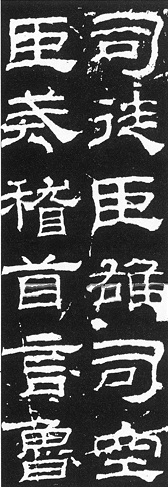 司徒臣雄司空
臣戒稽首言魯